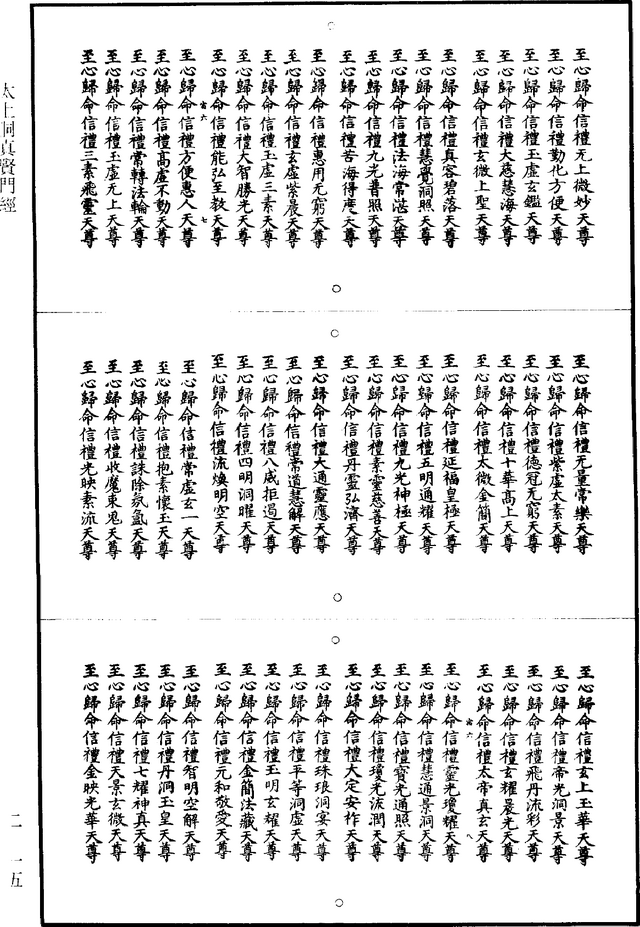 太上洞真賢門經
至心歸命信禮无上微妙天尊
至心歸命信禮勤化方便天尊
至心歸命信禮玉虛玄鑑天尊
至心歸命信禮大慈慧海天尊
至心歸命信禮玄微上聖天尊
至心歸命信禮真容碧落天尊
至心歸命信禮慧覺洞照天尊
至心歸命信禮法海常湛天尊
至心歸命信禮九光普照天尊
至心歸命信禮苦海得度天尊
至心歸命信禮惠用无窮天尊
至心歸命信禮玄虛紫晨天尊
至心歸命信禮玉虛三素天尊
至心歸命信禮大智勝光天尊
至心歸命信禮能弘至教天尊
六 七
至心歸命信禮方便惠人天尊
至心歸命信禮高虛不動天尊
至心歸命信禮常轉法輪天尊
至心歸命信禮玉虛无上天尊
至心歸命信禮三素飛靈天尊
至心歸命信禮无量常樂天尊
至心歸命信禮紫虛太素天尊
至心歸命信禮德冠无窮天尊
至心歸命信禮十華高上天尊
至心歸命信禮太微金簡天尊
至心歸命信禮延福皇極天尊
至心歸命信禮五明通耀天尊
至心歸命信禮九光神極天尊
至心歸命信禮素靈慈善天尊
至心歸命信禮丹靈弘濟天尊
至心歸命信禮大通靈應天尊
至心歸命信禮常道慧解天尊
至心歸命信禮八威拒遏天尊
至心歸命信禮四明洞曜天尊
至心歸命信禮流煥明空天尊
至心歸命信禮常虛玄一天尊
至心歸命信禮抱素懷玉天尊
至心歸命信禮誅除氛氳天尊
至心歸命信禮收魔束鬼天尊
至心歸命信禮光映素流天尊
至心歸命信禮玄上玉華天尊
至心歸命信禮帝光洞景天尊
至心歸命信禮飛丹流彩天尊
至心歸命信禮玄耀晨光天尊
至心歸命信禮太帝真玄天尊
六 八
至心歸命信禮靈光瓊耀天尊
至心歸命信禮慧通景洞天尊
至心歸命信禮寶光通照天尊
至心歸命信禮瓊光流潤天尊
至心歸命信禮大定安祚天尊
至心歸命信禮珠琅洞宴天尊
至心歸命信禮平等洞虛天尊
至心歸命信禮玉明玄耀天尊
至心歸命信禮金簡法藏天尊
至心歸命信禮元和敬愛天尊
至心歸命信禮智明空解天尊
至心歸命信禮丹洞玉皇天尊
至心歸命信禮七耀神真天尊
至心歸命信禮天景玄微天尊
至心歸命信禮金映光華天尊
二 一五